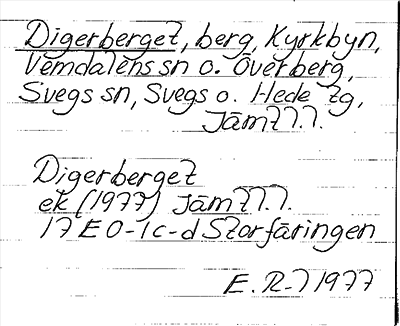 Digerberget, berg, Kyrkbyn,
Vemdalens sn o. Överberg,
Svegs sn, Svegs o. Hede tg,
Jämtl.
Digerberget
ek (1977) Jämtl.
17 E 0-1 c-d Storfäringen
E. R-7 1977